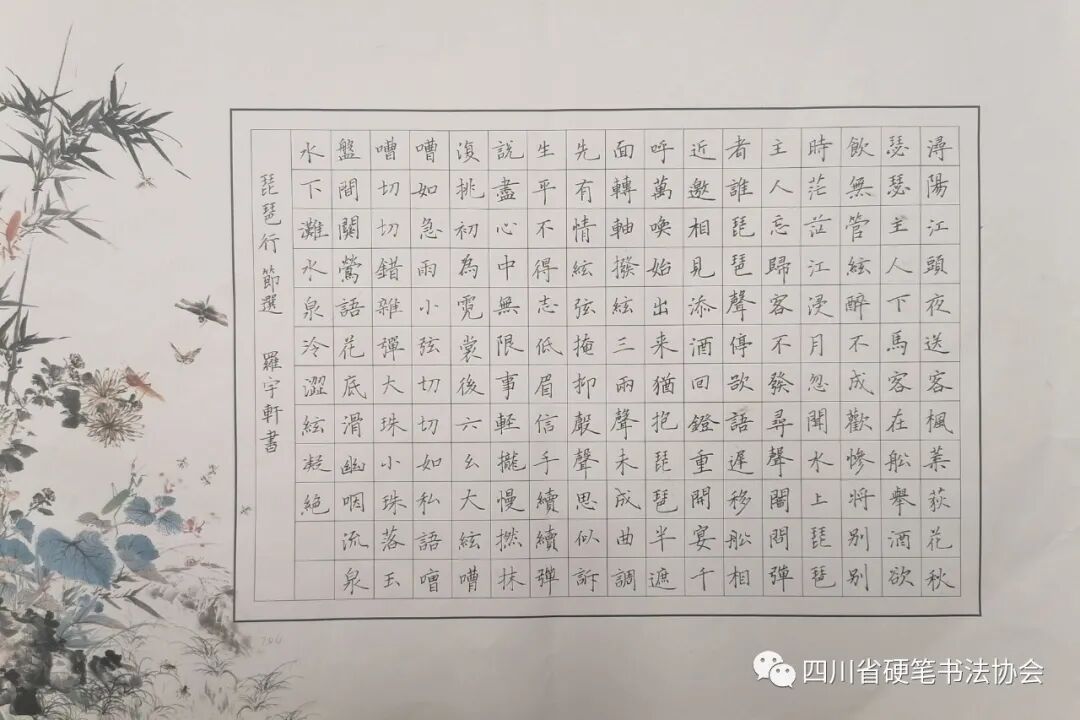 潯陽江頭夜送客楓葉荻花秋
瑟瑟主人下馬客在舩舉酒欲
飲無管絃醉不成歡慘将别别
時茫茫江浸月忽聞水上琵琶
主人忘歸客不發尋聲闇問彈
者誰琵琶聲停欲語遲移舩相
近邀相見添酒回鐙重開宴千
呼萬喚始出来猶抱琵琶半遮
面轉軸撥絃三兩聲未成曲調
先有情絃弦掩抑聲聲思似訴
生平不得志低眉信手續續彈
說盡心中無限事軽攏慢撚抹
復挑初為霓裳後六幺大絃嘈
嘈如急雨小弦切切如私語嘈
嘈切切錯雜彈大珠小珠落玉
盤間關鶯語花底滑幽咽流泉
水下灘水泉冷澀絃凝絶
琵琶行 節選 羅宇軒書
四川省硬笔书法协会